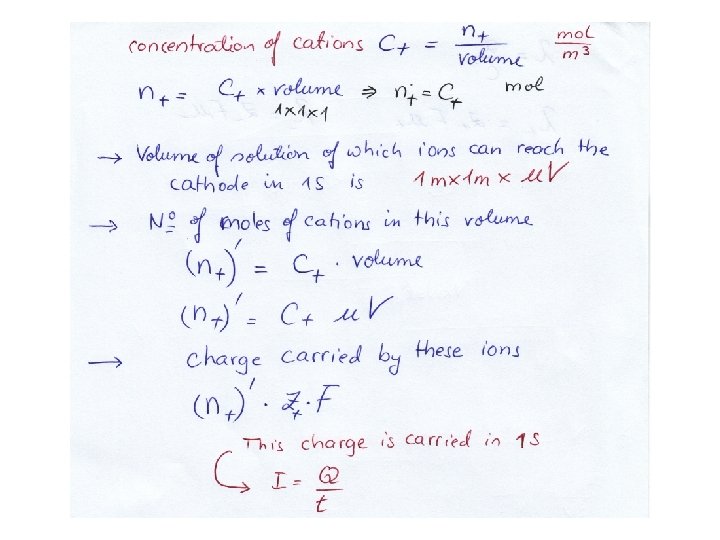 concentration of cations C₊ = n₊/volume mol/m³
n₊ = C₊ × volume ⇒ n₊ = C₊ mol
1×1×1
→ Volume of solution of which ions can reach the
cathode in 1s is 1m×1m × uV
→ Nº of moles of cations in this volume
(n₊)' = C₊ · volume
(n₊)' = C₊ uV
→ charge carried by these ions
(n₊)' · z₊ · F
This charge is carried in 1s
↳ I = Q/t